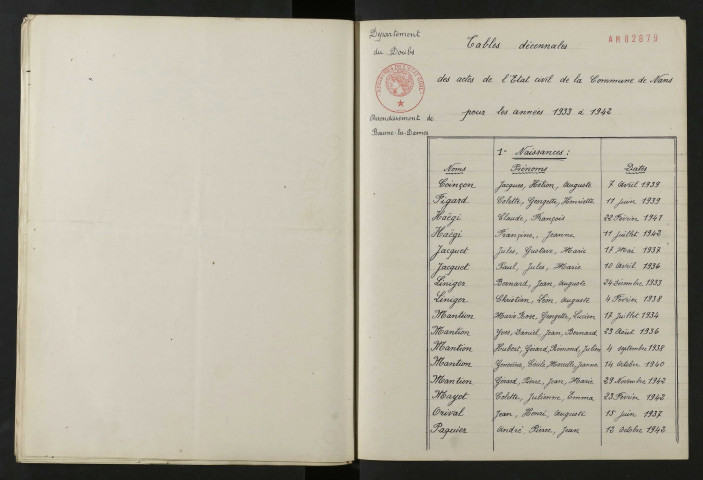 Département
du Doubs
Arrondissement de
Baume-les-Dames
AM 82879
Tables décennales
des actes de l'Etat civil de la Commune de Nans
pour les années 1933 à 1942
1º Naissances :
Noms Prénoms Dates
Coinçon Jacques, Hélion, Auguste 7 Avril 1939
Figard Colette, Georgette, Henriette 11 juin 1939
Haëgi Claude, François 22 Février 1941
Haëgi Françine, Jeanne 11 juillet 1942
Jacquet Jules, Gustave, Marie 17 Mai 1937
Jacquet Paul, Jules, Marie 10 Avril 1936
Liniger Bernard, Jean, Auguste 24 décembre 1933
Liniger Christian, Léon, Auguste 4 Février 1938
Mantion Marie, Rose, Georgette, Lucien 17 Juillet 1934
Mantion Yves, Daniel, Jean, Bernard 23 Août 1936
Mantion Hubert, Gérard, Rémond, Julien 4 septembre 1938
Mantion Geneviève, Cécile, Marcelle, Jeanne 14 Octobre 1940
Mantion Gérard, Pierre, Jean, Marie 29 Novembre 1942
Mayot Colette, Julienne, Emma 23 Février 1942
Orival Jean, Henri, Auguste 15 juin 1937
Paguier André, Pierre, Jean 12 Octobre 1942